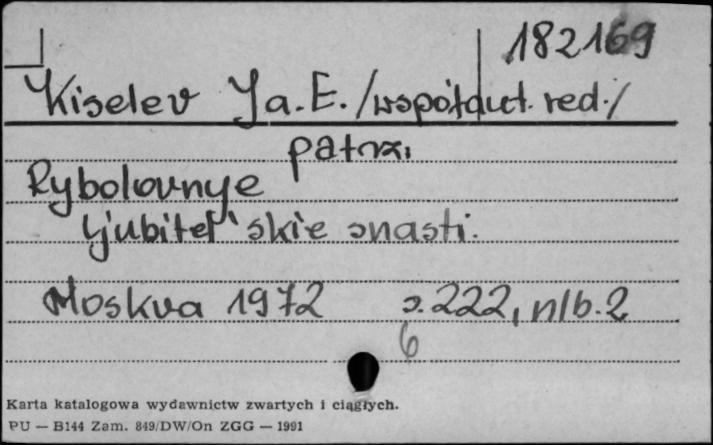 182169
Kiselev Ja. E. /współaut. red./
patrz:
Rybolovnye
ljubitel'skie snasti.
Moskva 1972 s. 222, nlb. 2
6
Karta katalogowa wydawnictw zwartych i ciągłych.
PU — B144 Zam. 849/DW/On ZGG — 1991